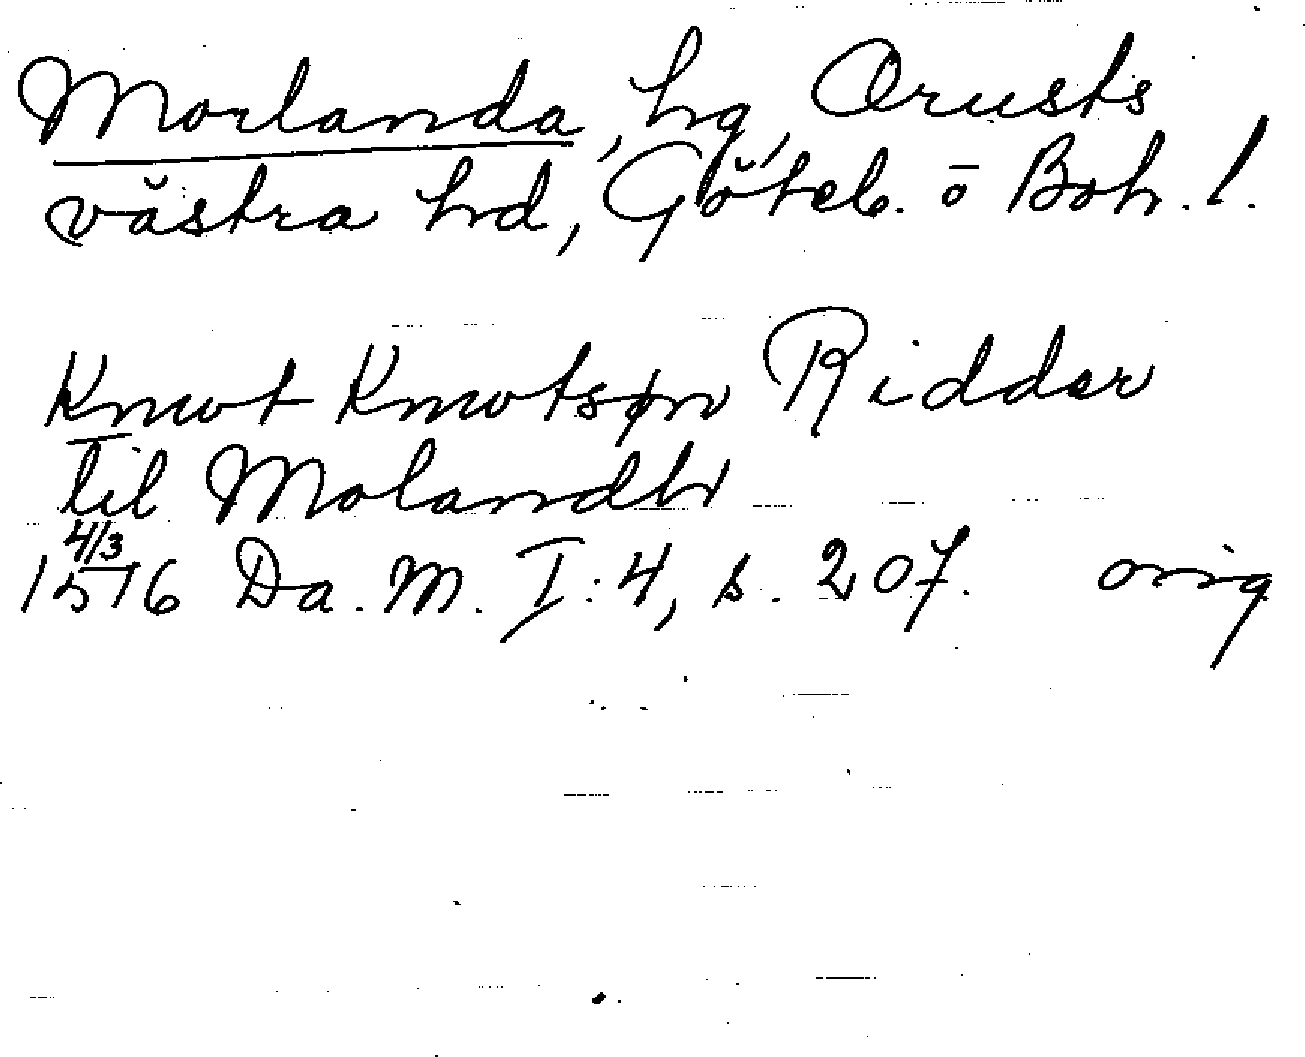 Morlanda, hg, Orusts
västra hd, Göteb. o Boh. l.
Knwt Knwtsøn Ridder
til Molandh
4/3
1576 Da. M. I: 4, s. 207. orig